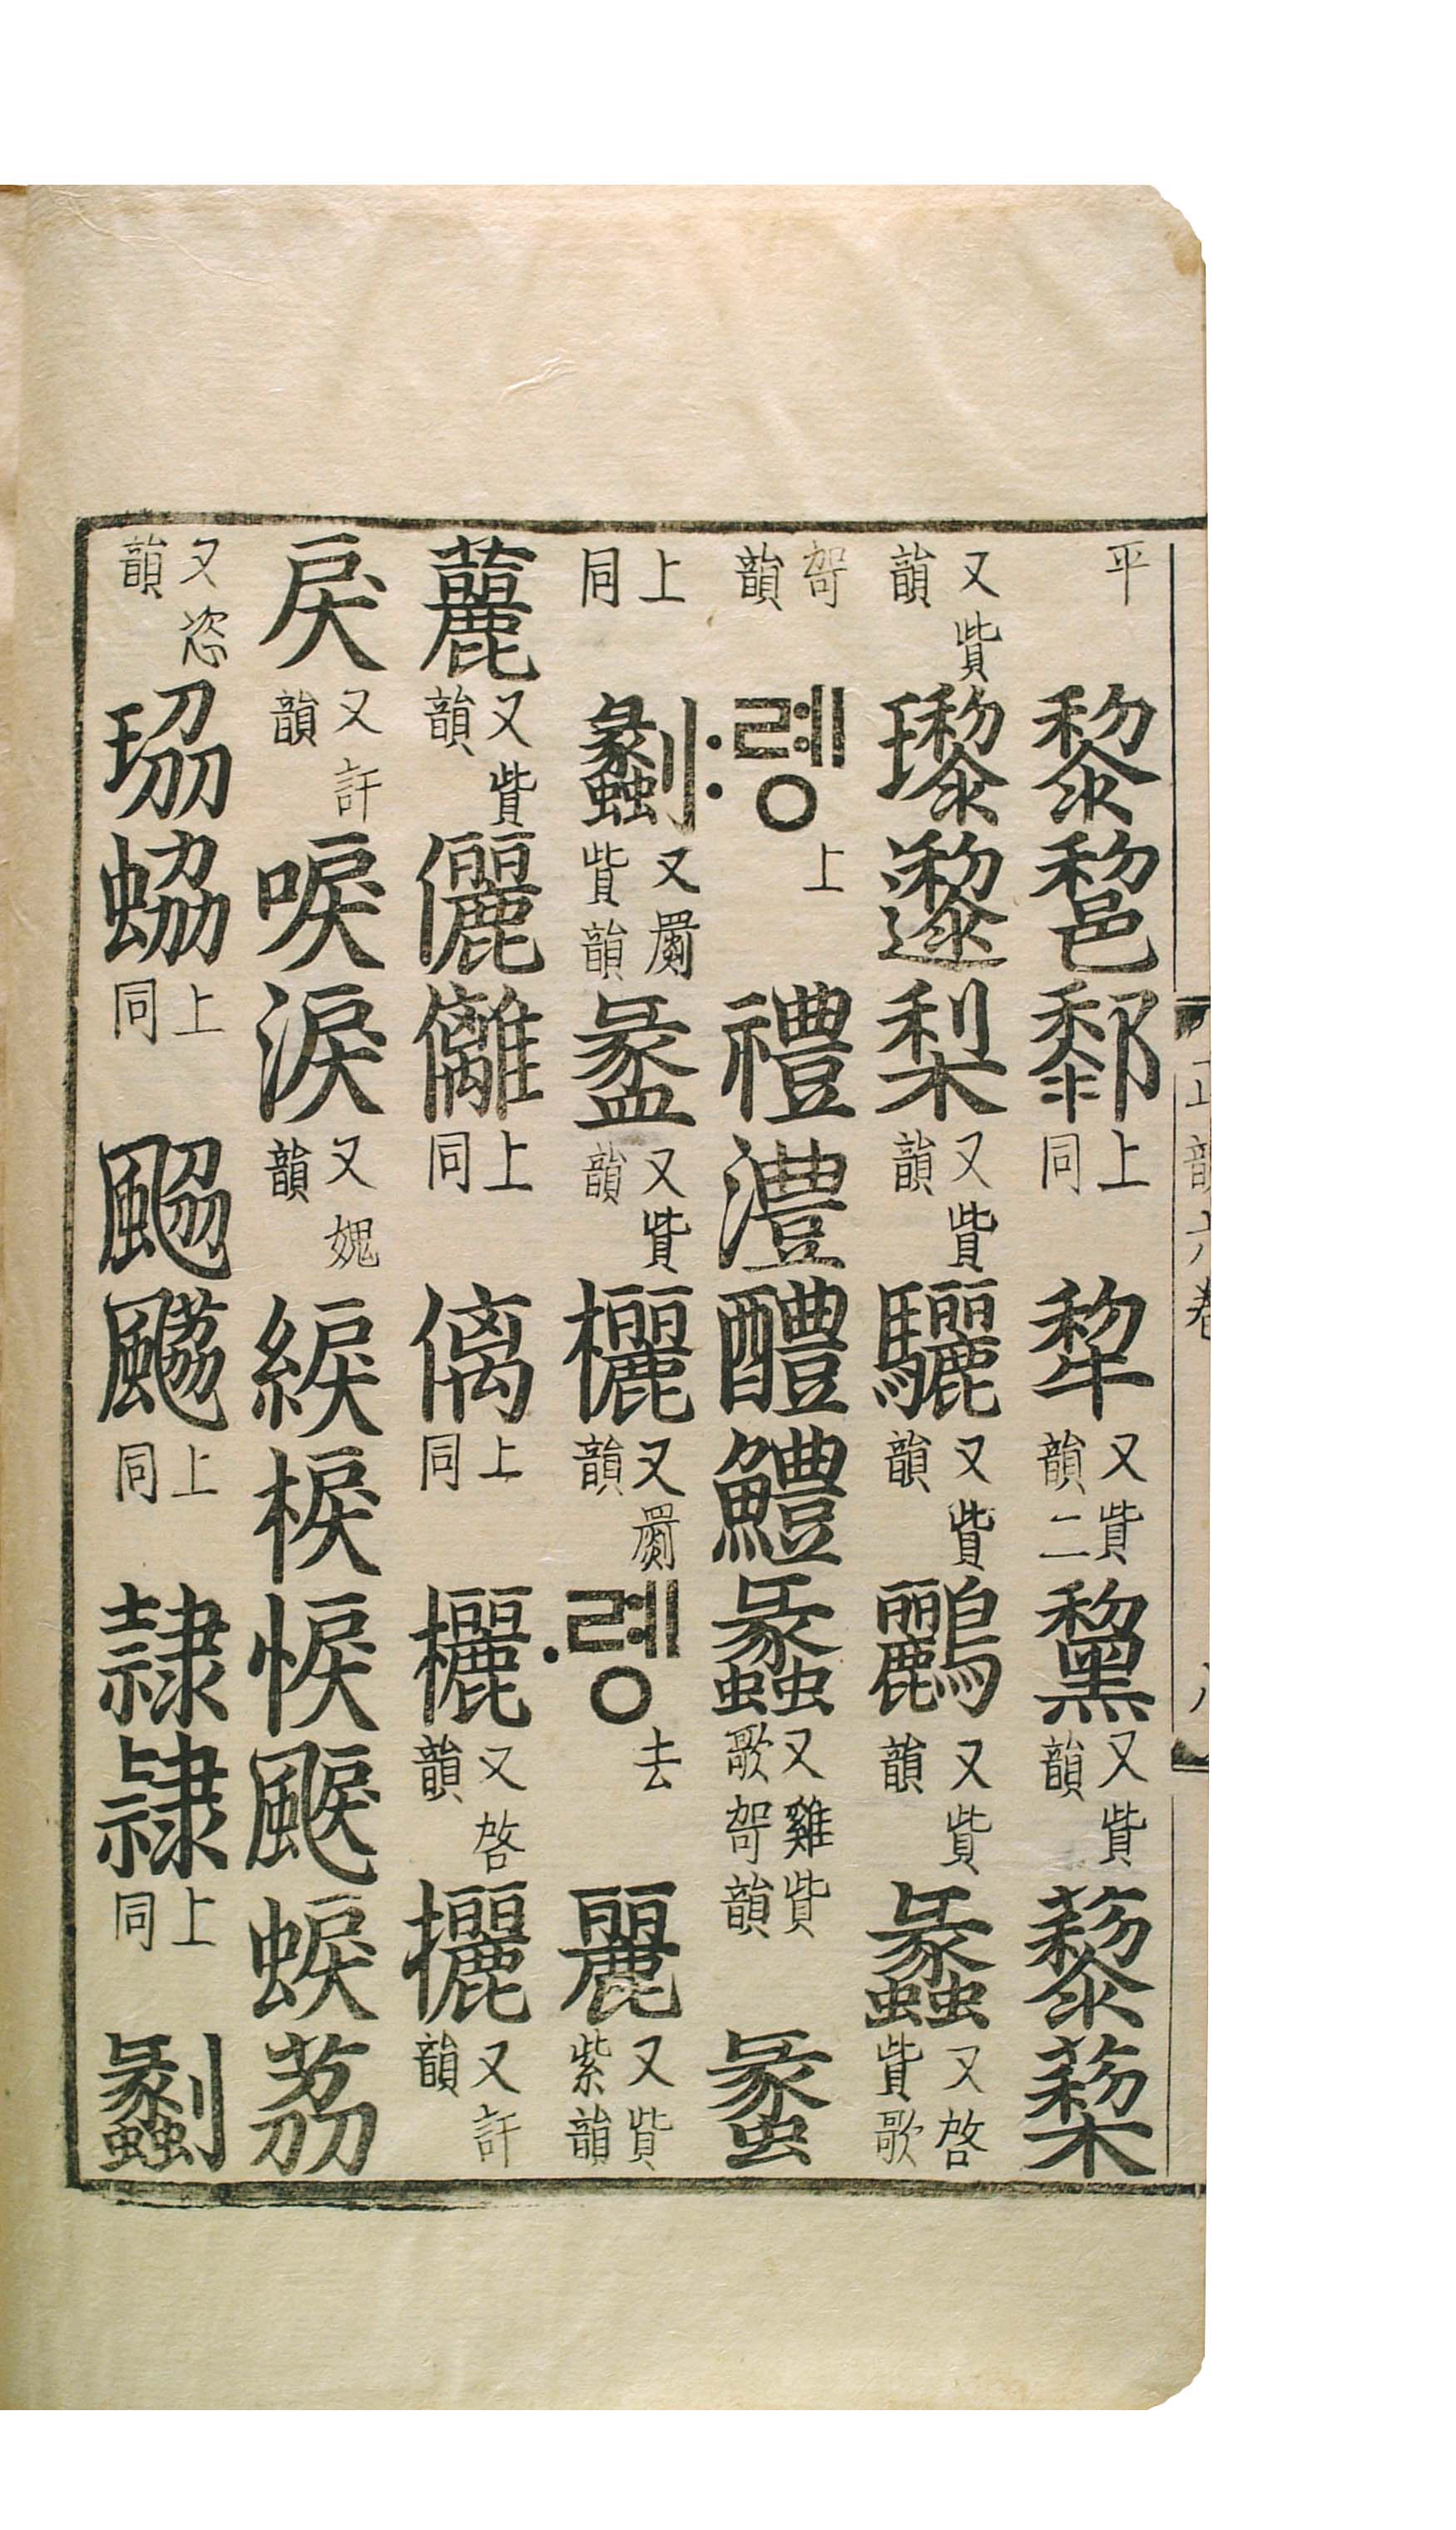 平 黎 䣓 上同 犂 又貲韻二 黧 又貲韻 藜 蔾
又貲韻 瓈 邌 梨 又貲韻 驪 又貲韻 鸝 又貲韻 蠡 又啓貲歌
哿韻 :롕 上 禮 澧 醴 鱧 蠡 又雞貲歌哿韻 蟸
上同 劙 又罽貲韻 盠 又貲韻 欐 又罽韻 ·롕 去 麗 又貲紫韻
䕻 又貲韻 儷 上同 㒧 上同 欐 又啓韻 攦 又訐韻
戾 又訐韻 唳 淚 又媿韻 綟 棙 悷 䬆 蜧 荔
又恣韻 珕 蛠 上同 上同 隷 隸 上同 劙
正韻六卷